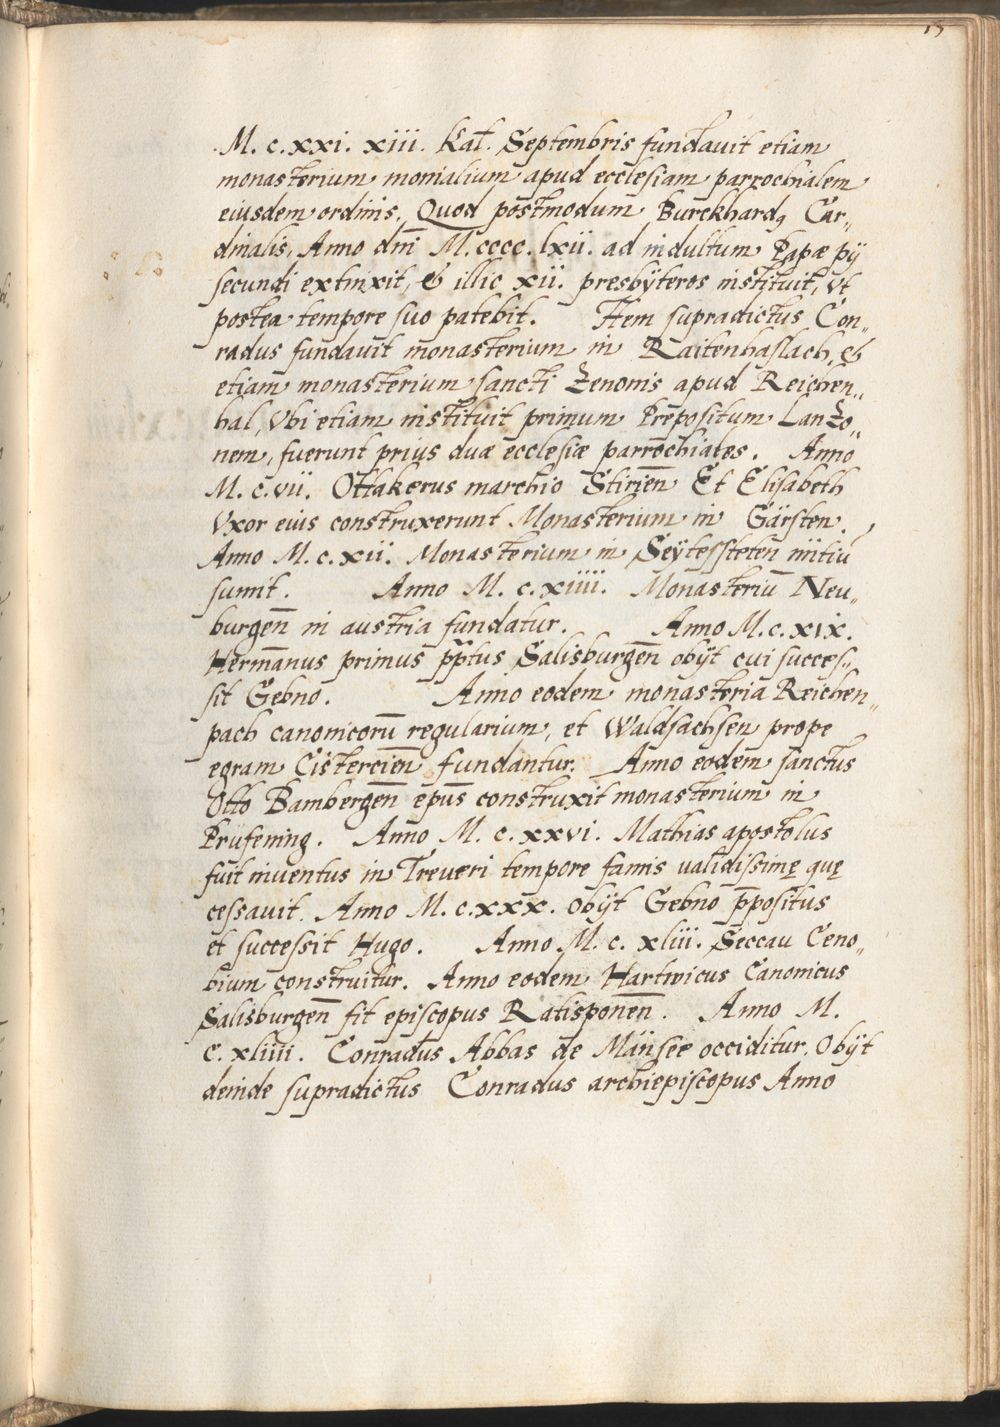 15
M. c. xxi. xiii. Kal. Septembris fundavit etiam
monasterium monialium apud ecclesiam parrochialem
eiusdem ordinis. Quod postmodum Burckhardꝯ Car„
dinalis, Anno dnī M. cccc. lxii. ad indultum Papæ pij
secundi extinxit, & illic xii. presbÿteros instituit, vt
postea tempore suo patebit. Item supradictus Con„
radus fundauit monasterium in Raitenhaslach, &
etiam monasterium sancti Zenonis apud Reichen„
hal, Vbi etiam instituit primum Prepositum Lanzo„
nem, fuerunt prius duæ ecclesiæ parrochiales. Anno
M. c. vii. Ottakerus marchio Stirien̄ Et Elisabeth
Vxor eius construxerunt Monasterium in Gärsten.
Anno M. c. xii. Monasterium in Seÿtessteten initiū
sumit. Anno M. c. xiiii. Monasteriū Neu„
burgen̄ in austria fundatur. Anno M. c. xix.
Herman̄us primus pp̄tus Salisburgen̄ obÿt cui succes„
sit Gebno. Anno eodem monasteria Reichen„
pach canonicorū regularium, et Waldsachsen prope
egram Cistercien̄ fundantur. Anno eodem sanctus
Otto Bambergen̄ ep̄us construxit monasterium in
Prüfening. Anno M. c. xxvi. Mathias apostolus
fuit inuentus in Treueri tempore famis validissimę quę
cessauit. Anno M. c. xxx. obÿt Gebno p̄positus
et successit Hugo. Anno M. c. xliii. Seccau Ceno„
bium construitur. Anno eodem Hartwicus Canonicus
Salisburgen̄ fit episcopus Ratisponen̄. Anno M.
c. xliiii. Conradus Abbas de Mänsee occiditur. Obÿt
deinde supradictus Conradus archiepiscopus Anno